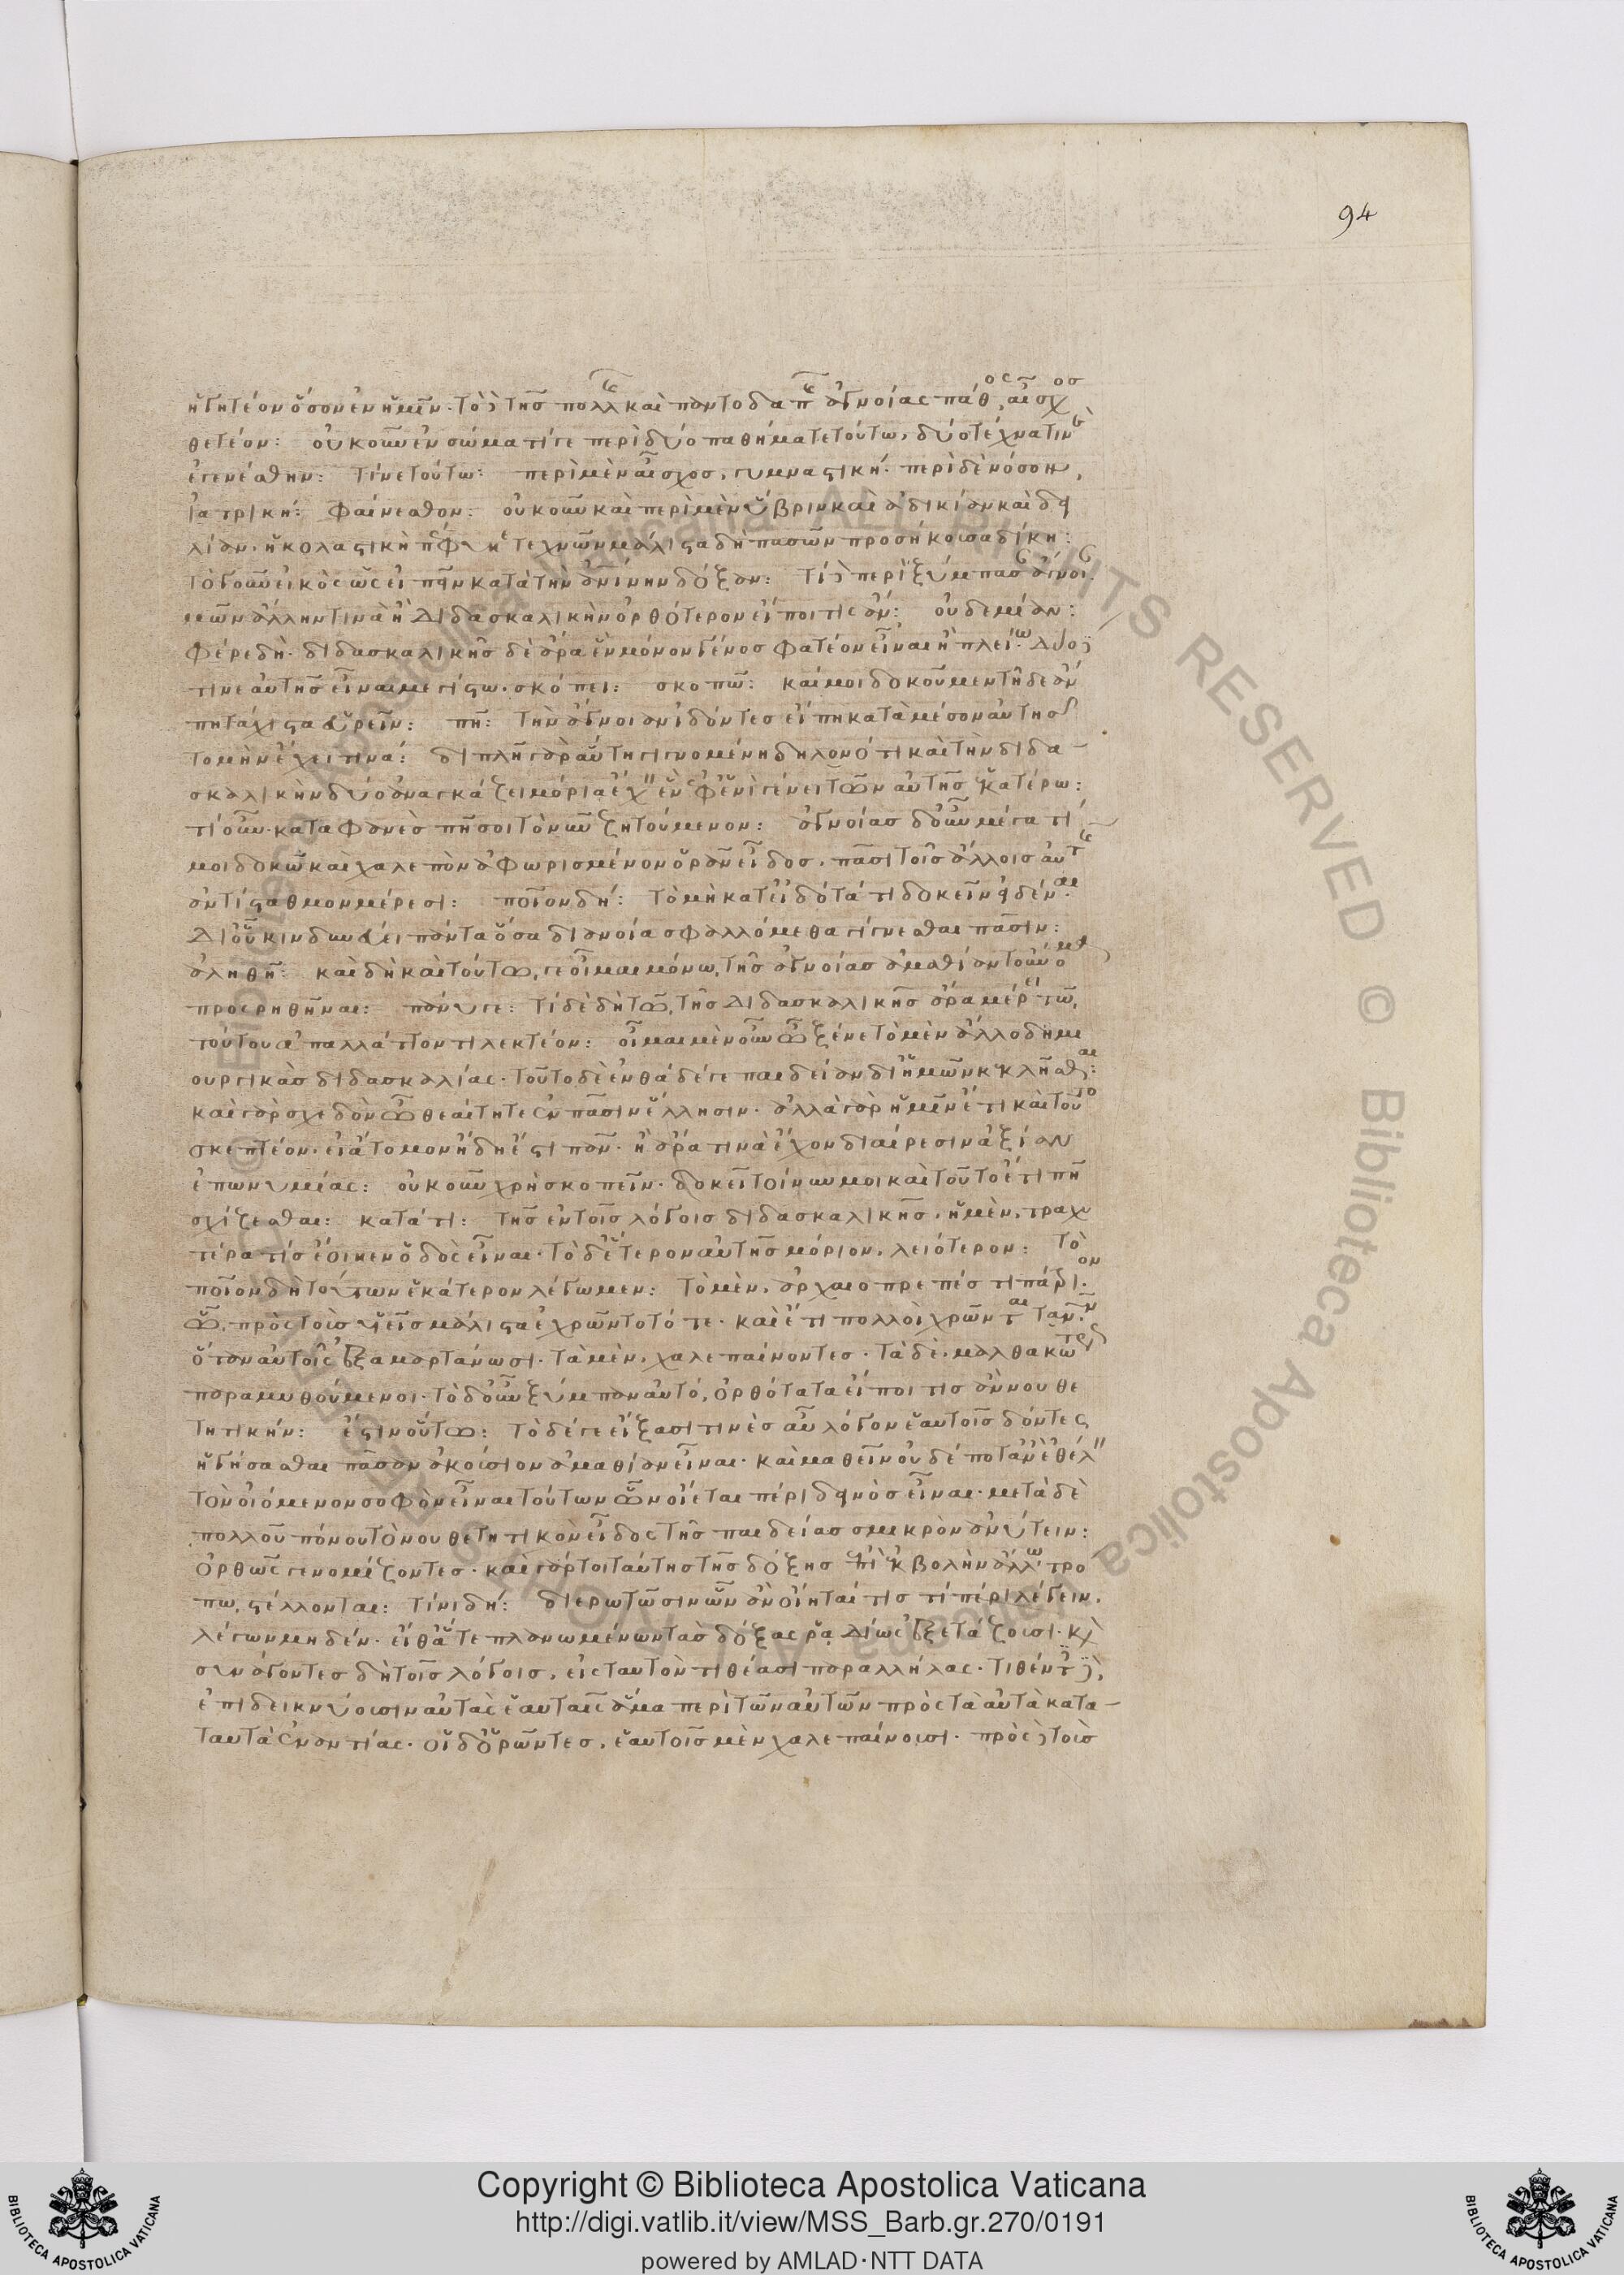 94
ἡγητέον νόσον ἐν ἡμῖν· τὸ δὲ τῆς πολλῆς καὶ παντοδαπῆς ἀγνοίας πάθος, αἶσχος
θετέον: οὐκοῦν ἐν σώματί γε περὶ δύο παθήματε τούτω, δύο τέχνα τινὲ
ἐγενέσθην: τίνε τούτω: περὶ μὲν αἶσχος, γυμναστική· περὶ δὲ νόσον,
ἰατρική: φαίνεσθον: οὐκοῦν καὶ περὶ μὲν ὕβριν καὶ ἀδικίαν καὶ δει
λίαν· ἡ κολαστικὴ πέφυκε τεχνῶν μάλιστα δὴ πασῶν προσήκουσα δίκη:
τὸ γοῦν εἰκὸς ὡς εἰπεῖν κατὰ τὴν ἀνθρωπίνην δόξαν: τί δὲ περὶ ξύμπασαν ἄγνοιαν.
μῶν ἄλλην τινὰ ἢ διδασκαλικὴν ὀρθότερον εἴποι τις ἄν: οὐδεμίαν:
φέρε δή· διδασκαλικῆς δὲ ἆρα ἓν μόνον γένος φατέον εἶναι ἢ πλείω· δύο δέ
τινε αὐτῆς εἶναι μεγίστω· σκόπει: σκοπῶ: καί μοι δοκοῦμεν τῇδε ἄν
πῃ τάχιστα εὑρεῖν: πῇ: τὴν ἄγνοιαν ἰδόντες εἴ πῃ κατὰ μέσον αὐτῆς
τομὴν ἔχει τινά: διπλῆ γὰρ αὕτη γιγνομένη δηλονότι καὶ τὴν διδα-
σκαλικὴν δύο ἀναγκάζει μόρια ἔχειν ἓν ἐφ' ἑνὶ γένει τῶν αὐτῆς ἑκατέρω:
τί οὖν· καταφανές πῄ σοι τὸ νῦν ζητούμενον: ἀγνοίας δ' οὖν μέγα τί
μοι δοκῶ καὶ χαλεπὸν ἀφωρισμένον ὁρᾶν εἶδος, πᾶσι τοῖς ἄλλοις αὐτῆς
ἀντίσταθμον μέρεσι: ποῖον δή: τὸ μὴ κατειδότα τι δοκεῖν εἰδέναι·
δι' οὗ κινδυνεύει πάντα ὅσα διανοίᾳ σφαλλόμεθα γίγνεσθαι πᾶσιν:
ἀληθῆ: καὶ δὴ καὶ τούτῳ, γε οἶμαι μόνῳ, τῆς ἀγνοίας ἀμαθίαν τοὔνομα
προσρηθῆναι: πάνυ γε: τί δὲ δὴ τῷ, τῆς διδασκαλικῆς ἆρα μέρει τῷ,
τοῦτο ἀπαλλάττοντι λεκτέον: οἶμαι μὲν οὖν ὦ ξένε τὸ μὲν ἄλλο δημι
ουργικὰς διδασκαλίας· τοῦτο δὲ ἐνθάδε γε παιδείαν δι' ἡμῶν κεκλῆσθαι:
καὶ γὰρ σχεδὸν ὦ θεαίτητε ἐν πᾶσιν ἕλλησιν· ἀλλὰ γὰρ ἡμῖν ἔτι καὶ τοῦτο
σκεπτέον· εἰ ἄτομον ἤδη ἔστι πᾶν· ἢ ἆρά τινα ἔχον διαίρεσιν ἀξίαν
ἐπωνυμίας: οὐκοῦν χρὴ σκοπεῖν· δοκεῖ τοίνυν μοι καὶ τοῦτο ἔτι πῇ
σχίζεσθαι: κατὰ τί: τῆς ἐν τοῖς λόγοις διδασκαλικῆς, ἡ μὲν, τραχυ
τέρα τίς ἔοικεν ὁδὸς εἶναι· τὸ δ' ἕτερον αὐτῆς μόριον, λειότερον: τὸ
ποῖον δὴ τούτων ἑκάτερον λέγωμεν: τὸ μὲν, ἀρχαιοπρεπές τι πάτριον·
ᾧ, πρὸς τοὺς υἱεῖς μάλιστα ἐχρῶντό τότε· καὶ ἔτι πολλοὶ χρῶνται τανῦν·
ὅταν αὐτοῖς ἐξαμαρτάνωσι· τὰ μὲν, χαλεπαίνοντες· τὰ δὲ, μαλθακωτέρως
παραμυθούμενοι· τὸ δ' οὖν ξύμπαν αὐτό, ὀρθότατα εἴποι τις ἂν νουθε
τητικήν: ἔστιν οὕτω: τὸ δέ γε εἴξασί τινες αὖ λόγον ἑαυτοῖς δόντες
ἡγήσασθαι πᾶσαν ἀκούσιον ἀμαθίαν εἶναι· καὶ μαθεῖν οὐδέποτ' ἂν ἐθέλειν
τὸν οἰόμενον σοφὸν εἶναι τούτων ὧν οἴεται πέρι δεινὸς εἶναι· μετὰ δὲ
πολλοῦ πόνου τὸ νουθετητικὸν εἶδος τῆς παιδείας σμικρὸν ἀνύτειν:
ὀρθῶς γε νομίζοντες· καὶ γάρ τοι ταύτης τῆς δόξης ἐπὶ ἐκβολὴν ἄλλῳ τρό
πῳ, στέλλονται: τίνι δή: διερωτῶσιν ὧν ἂν οἴηταί τίς τι πέρι λέγειν,
λέγων μηδέν· εἶθ' ἅτε πλανωμένων τὰς δόξας ῥᾳδίως ἐξετάζουσι· καὶ
συνάγοντες δὴ τοῖς λόγοις, εἰς ταυτὸν τιθέασι παραλλήλας· τιθέντες δὲ,
ἐπιδεικνύουσιν αὐτὰς ἑαυταῖς ἅμα περὶ τῶν αὐτῶν πρὸς τὰ αὐτὰ κατα-
ταυτὰ ἐναντίας· οἱ δ' ὁρῶντες, ἑαυτοῖς μὲν χαλεπαίνουσι· πρὸς δὲ τοὺς
© Biblioteca Apostolica Vaticana ALL RIGHTS RESERVED
Copyright © Biblioteca Apostolica Vaticana
http://digi.vatlib.it/view/MSS_Barb.gr.270/0191
powered by AMLAD·NTT DATA
BIBLIOTECA APOSTOLICA VATICANA
BIBLIOTECA APOSTOLICA VATICANA